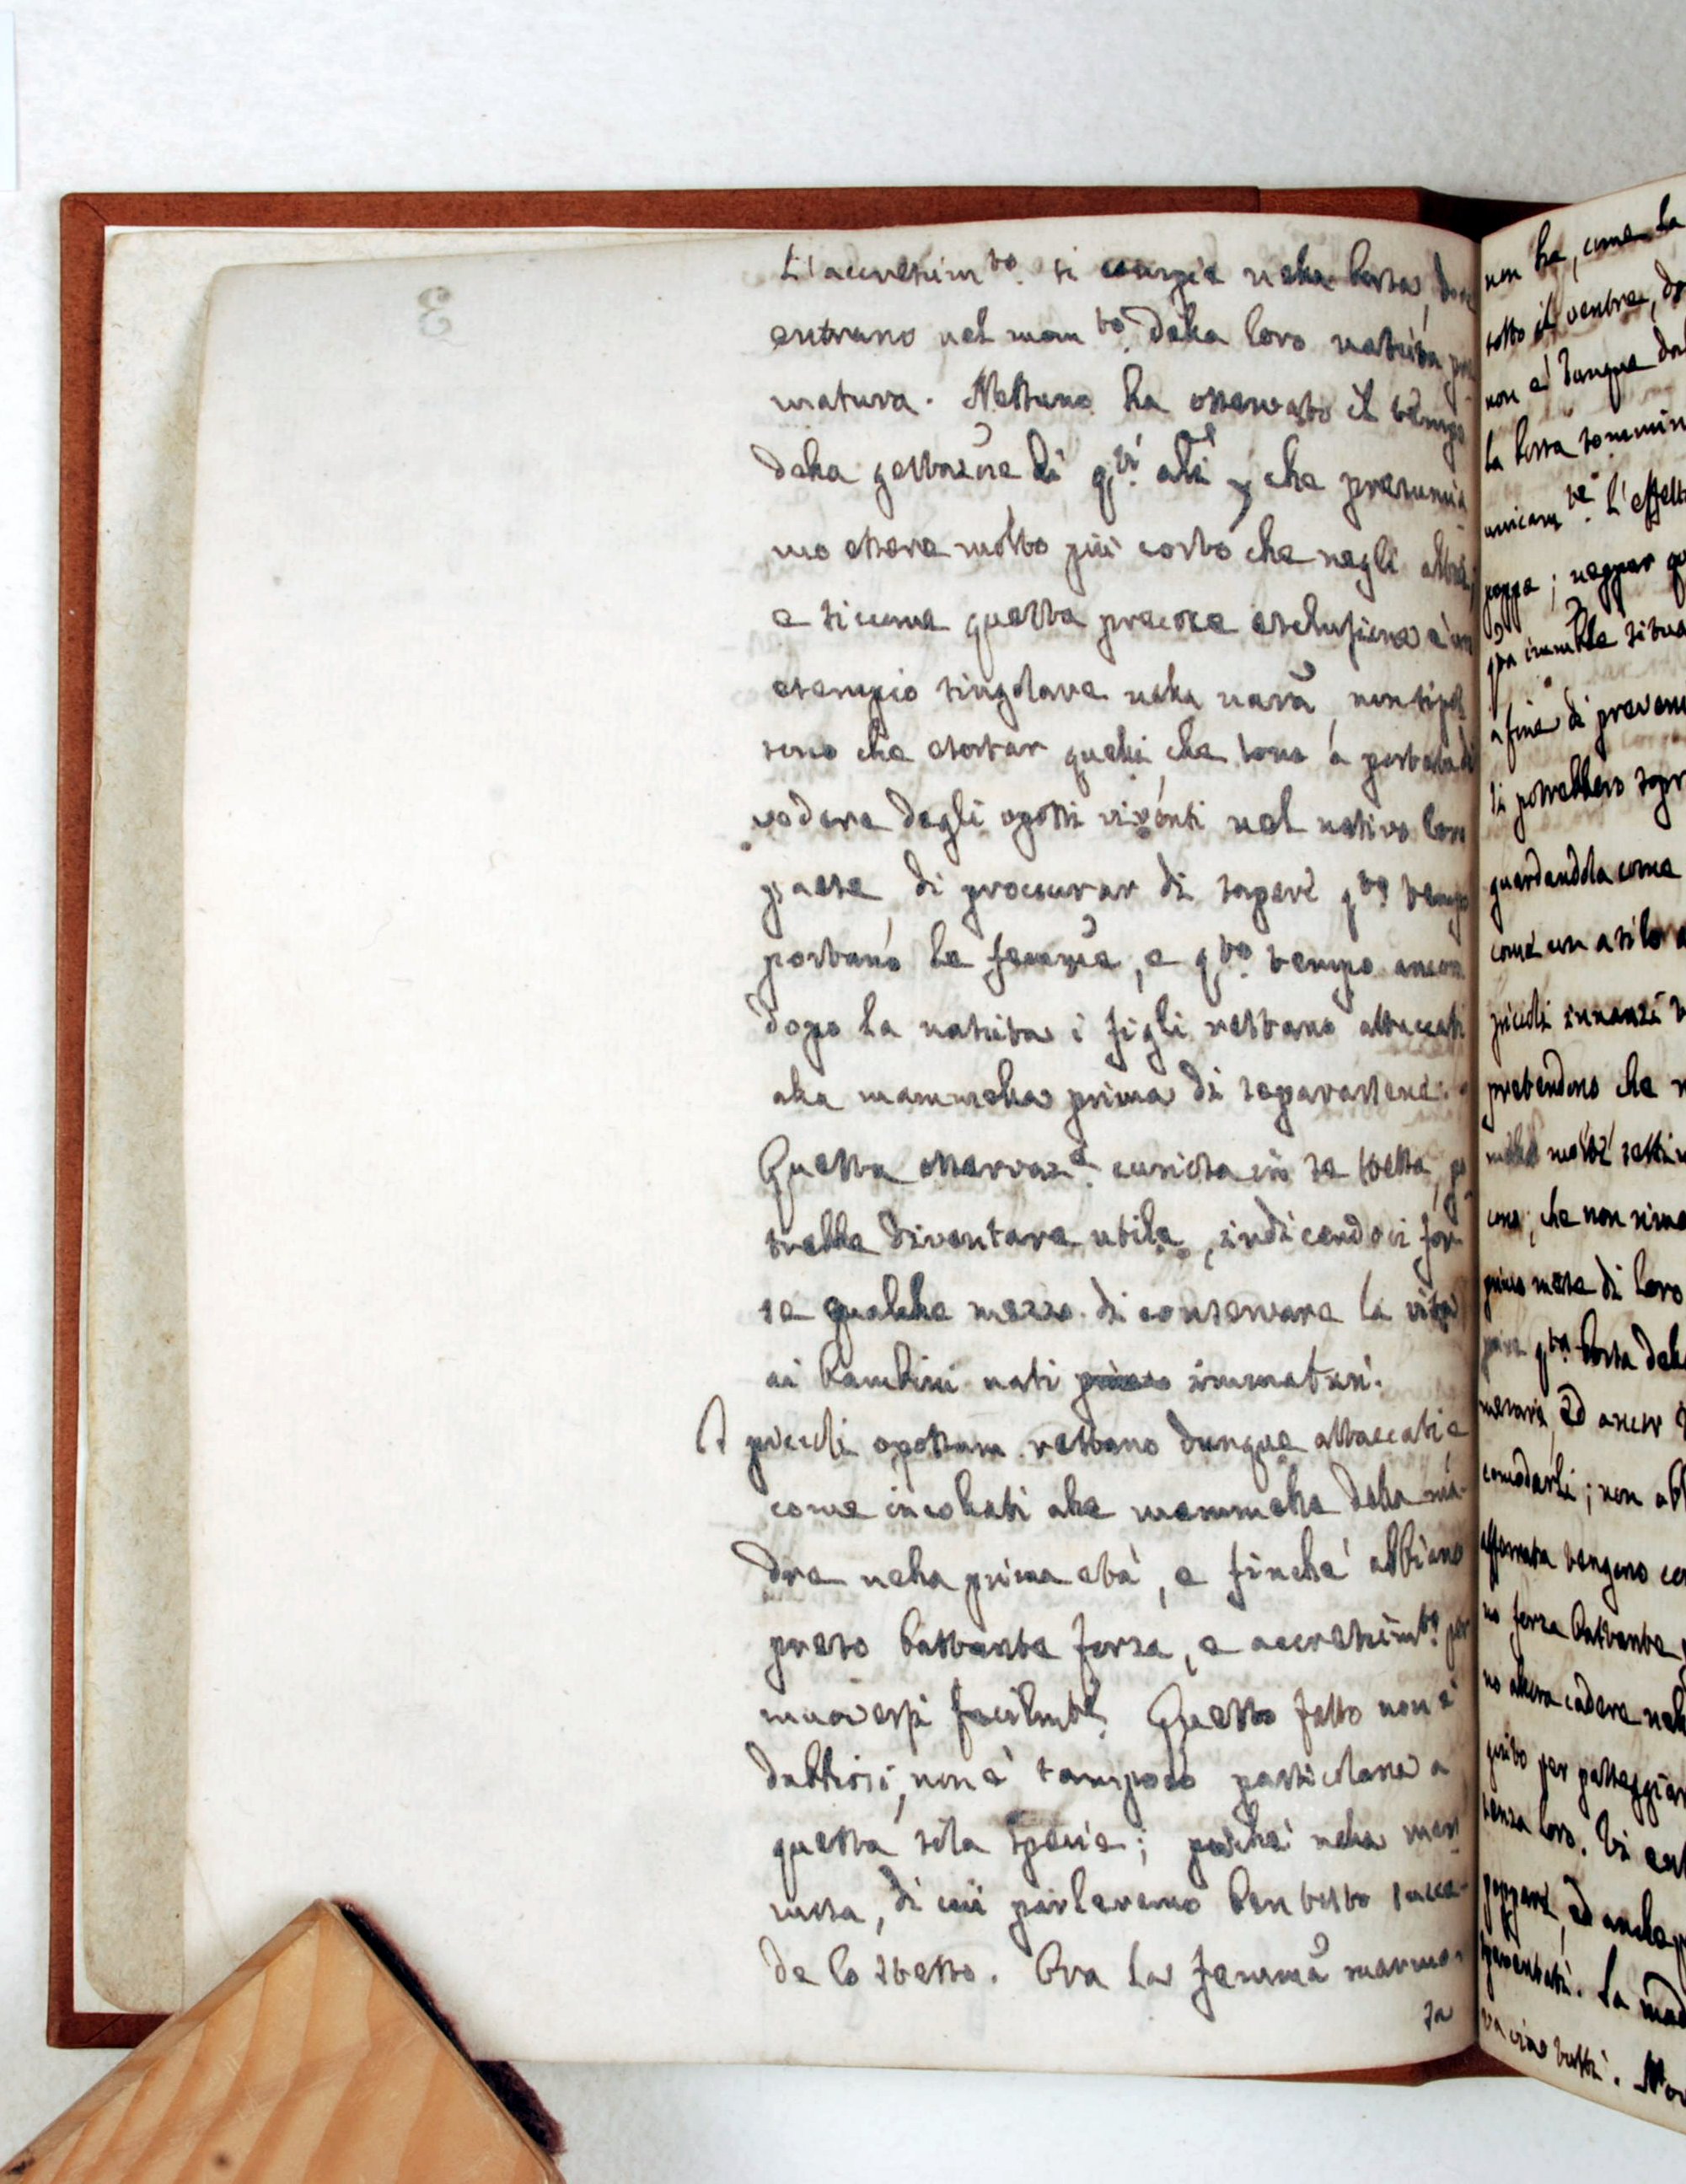 L'accrescim.to si compie nella borsa, dove
entrano nel mom.to della loro nascita pre
matura. Nessuno ha osservato il tempo
della gestazõne di q.ti ali, che presumia
mo essere molto più corto che negli altri;
e siccome questa precoce esclusione è un
esempio singolare nella nara, non si pos
sono che esortar quelli, che sono a portata di
vedere degli opossi viventi nel nativo loro
paese, di proccurar di sapere q.to tempo
portano le femme, e q.to tempo ancora
dopo la nascita i figli restano attaccati
alla mammella prima di separarsene.
Questa osservaz.e curiosa in se stessa, po
trebbe diventare utile, indicandoci for
se qualche mezzo di conservare la vita
ai bambini nati immaturi.
I piccoli opossum restano dunque attaccati e
come incollati alle mammelle della ma-
dre nella prima età, e finchè abbiano
preso bastante forza, e accrescim.to per
muoversi facilm.te Questo fatto non è
dubbioso, non è tampoco particolare a
questa sola specie; poichè nella mar
mosa, di cui parleremo ben tosto succe-
de lo stesso. Ora la femma marmo-
sa
non ha, come la
sotto il ventre, do
non è dunque dal
la borsa sommin
unicam.te L'effett
poppe; neppur
qta immobile situa
a fine di preveni
si potrebbero sopr
guardandola come
come un asilo a
piccoli innanzi
pretendono che
molti
cono, che non rima
primo mese di loro
q.ta borsa dell
ed ancor
comodarli; non abb
vengono
no forza bastante
no allora cadere nell
per passeggiar
senza loro. Vi
poppare, ed anche
spaventati. La mad
tutti. No
3